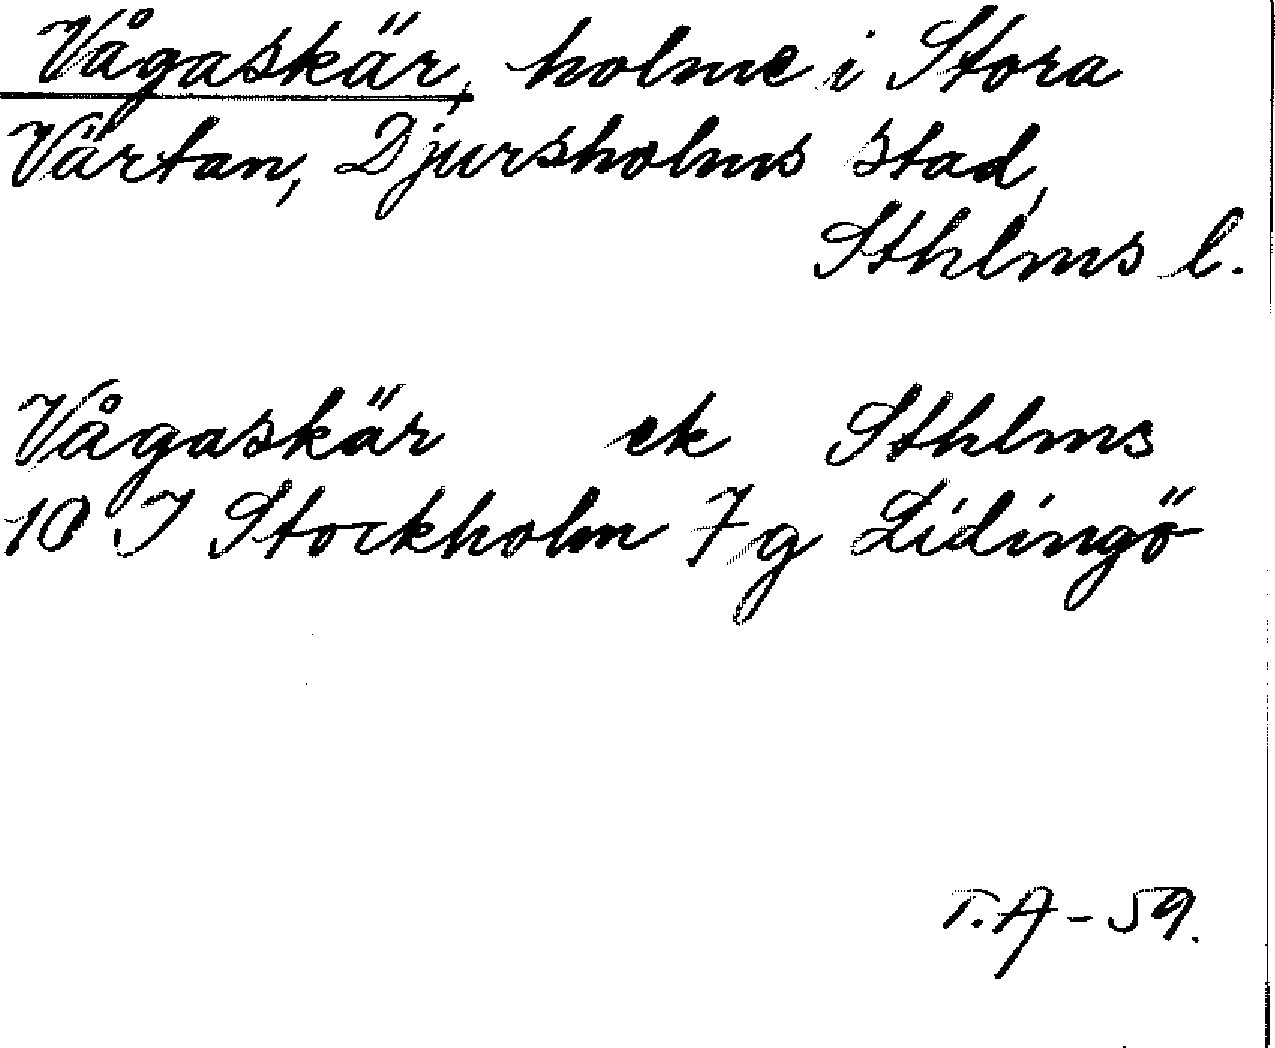 Vågaskär, holme i Stora
Värtan, Djursholms stad,
Sthlms l.
Vågaskär ek Sthlms
10 I Stockholm 7 g Lidingö
T.A - 59.